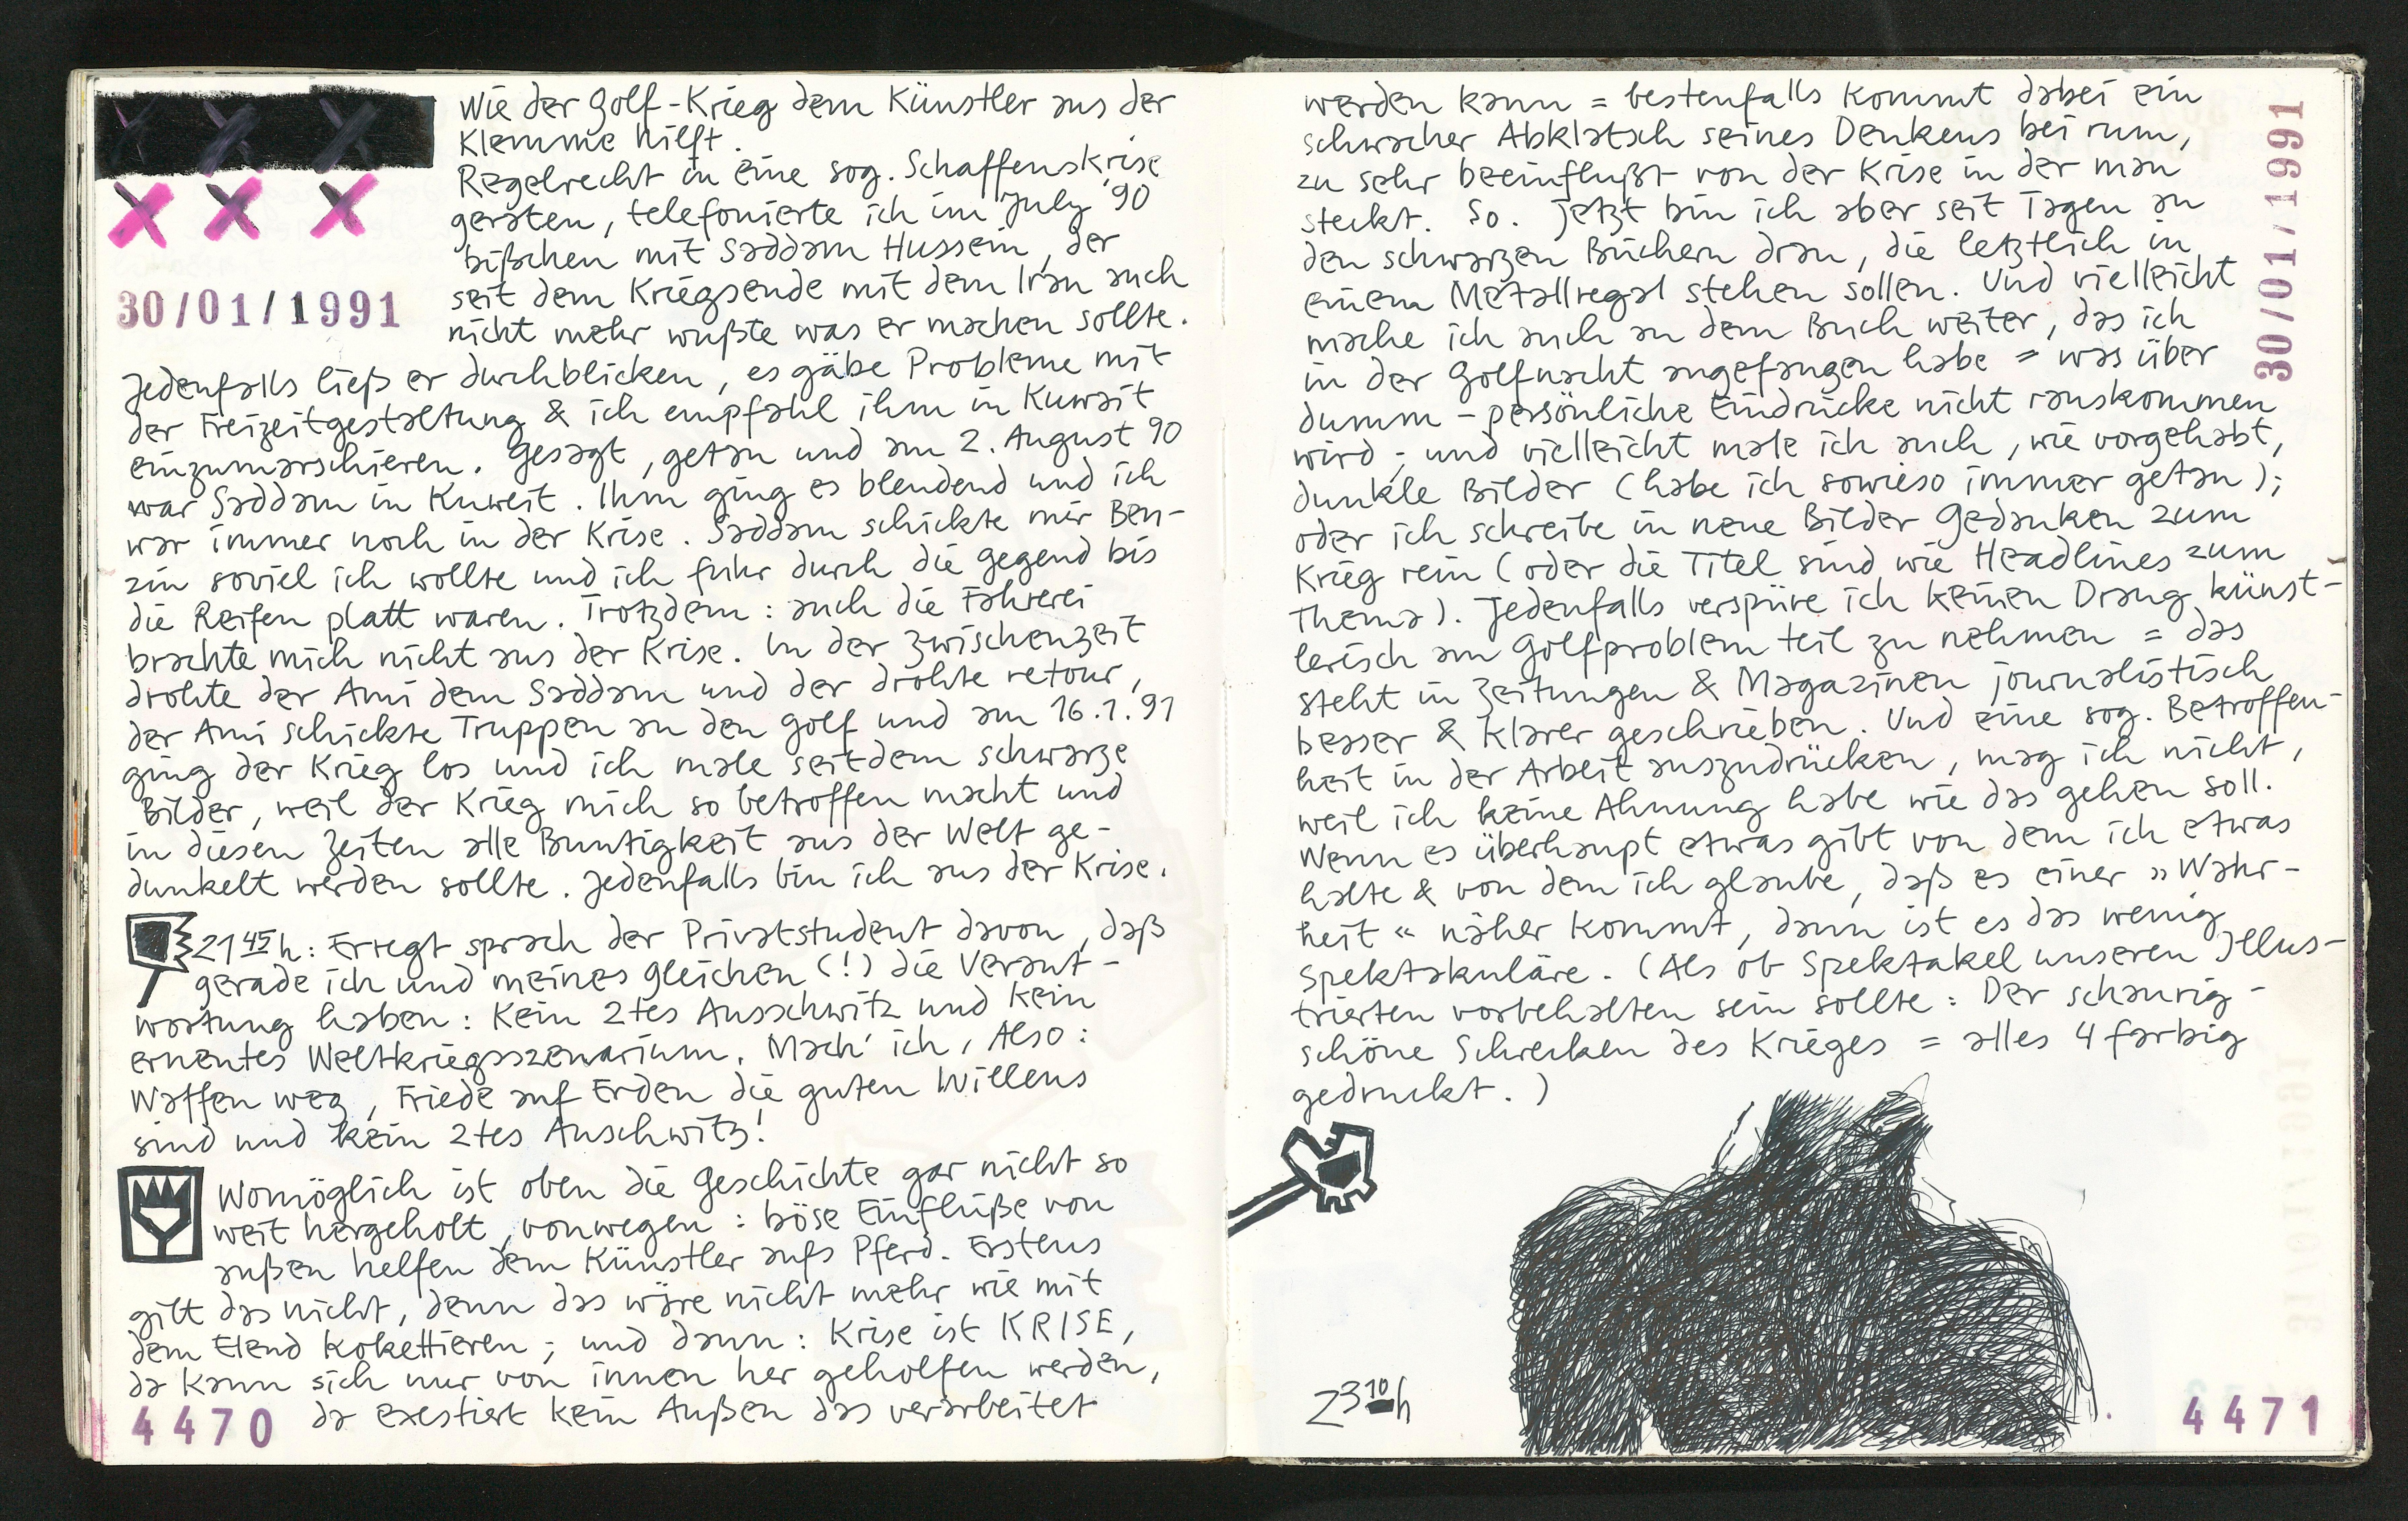 Wie der Golf-Krieg dem Künstler aus der
Klemme hilft.
Regelrecht in eine sog. Schaffenskrise
geraten, telefonierte ich im July '90
bißchen mit Saddam Hussein, der
seit dem Kriegsende mit dem Iran auch
nicht mehr wußte was er machen sollte.
30/01/1991
Jedenfalls ließ er durchblicken, es gäbe Probleme mit
der Freizeitgestaltung & ich empfahl ihm in Kuwait
einzumarschieren. Gesagt, getan und am 2. August 90
war Saddam in Kuweit. Ihm ging es blendend und ich
war immer noch in der Krise. Saddam schickte mir Ben-
zin soviel ich wollte und ich fuhr durch die Gegend bis
die Reifen platt waren. Trotzdem: auch die Fahrerei
brachte mich nicht aus der Krise. In der Zwischenzeit
drohte der Ami dem Saddam und der drohte retour,
der Ami schickte Truppen an den Golf und am 16.1.91
ging der Krieg los und ich male seitdem schwarze
Bilder, weil der Krieg mich so betroffen macht und
in diesen Zeiten alle Buntigkeit aus der Welt ge-
dunkelt werden sollte. Jedenfalls bin ich aus der Krise.
21 45 h: Erregt sprach der Privatstudent davon, daß
gerade ich und meines Gleichen (!) die Verant-
wortung haben: Kein 2tes Ausschwitz und kein
erneutes Weltkriegsszenarium. Mach' ich, Also:
Waffen weg, Friede auf Erden die guten Willens
sind und kein 2tes Auschwitz!
Womöglich ist oben die Geschichte gar nicht so
weit hergeholt, vonwegen: böse Einflüße von
außen helfen dem Künstler aufs Pferd. Erstens
gilt das nicht, denn das wäre nicht mehr wie mit
dem Elend kokettieren; und dann: Krise ist KRISE,
da kann sich nur von innen her geholfen werden,
da exestiert kein Außen das verarbeitet
4470
werden kann = bestenfalls kommt dabei ein
schwacher Abklatsch seines Denkens bei rum,
zu sehr beeinflußt von der Krise in der man
steckt. So. Jetzt bin ich aber seit Tagen an
den schwarzen Büchern dran, die letztlich in
einem Metallregal stehen sollen. Und vielleicht
mache ich auch an dem Buch weiter, das ich
in der Golfnacht angefangen habe = was über
dumm-persönliche Eindrücke nicht rauskommen
wird; und vielleicht male ich auch, wie vorgehabt,
dunkle Bilder (habe ich sowieso immer getan);
oder ich schreibe in neue Bilder Gedanken zum
Krieg rein (oder die Titel sind wie Headlines zum
Thema). Jedenfalls verspüre ich keinen Drang künst-
lerisch am Golfproblem teil zu nehmen = das
steht in Zeitungen & Magazinen journalistisch
besser & klarer geschrieben. Und eine sog. Betroffen-
heit in der Arbeit auszudrücken, mag ich nicht,
weil ich keine Ahnung habe wie das gehen soll.
Wenn es überhaupt etwas gibt von dem ich etwas
halte & von dem ich glaube, daß es einer »Wahr-
heit« näher kommt, dann ist es das wenig
spektakuläre. (Als ob Spektakel unseren Illus-
trierten vorbehalten sein sollte: Der schaurig-
schöne Schrecken des Krieges = alles 4 farbig
gedruckt.)
30/01/1991
23 10 h
4471